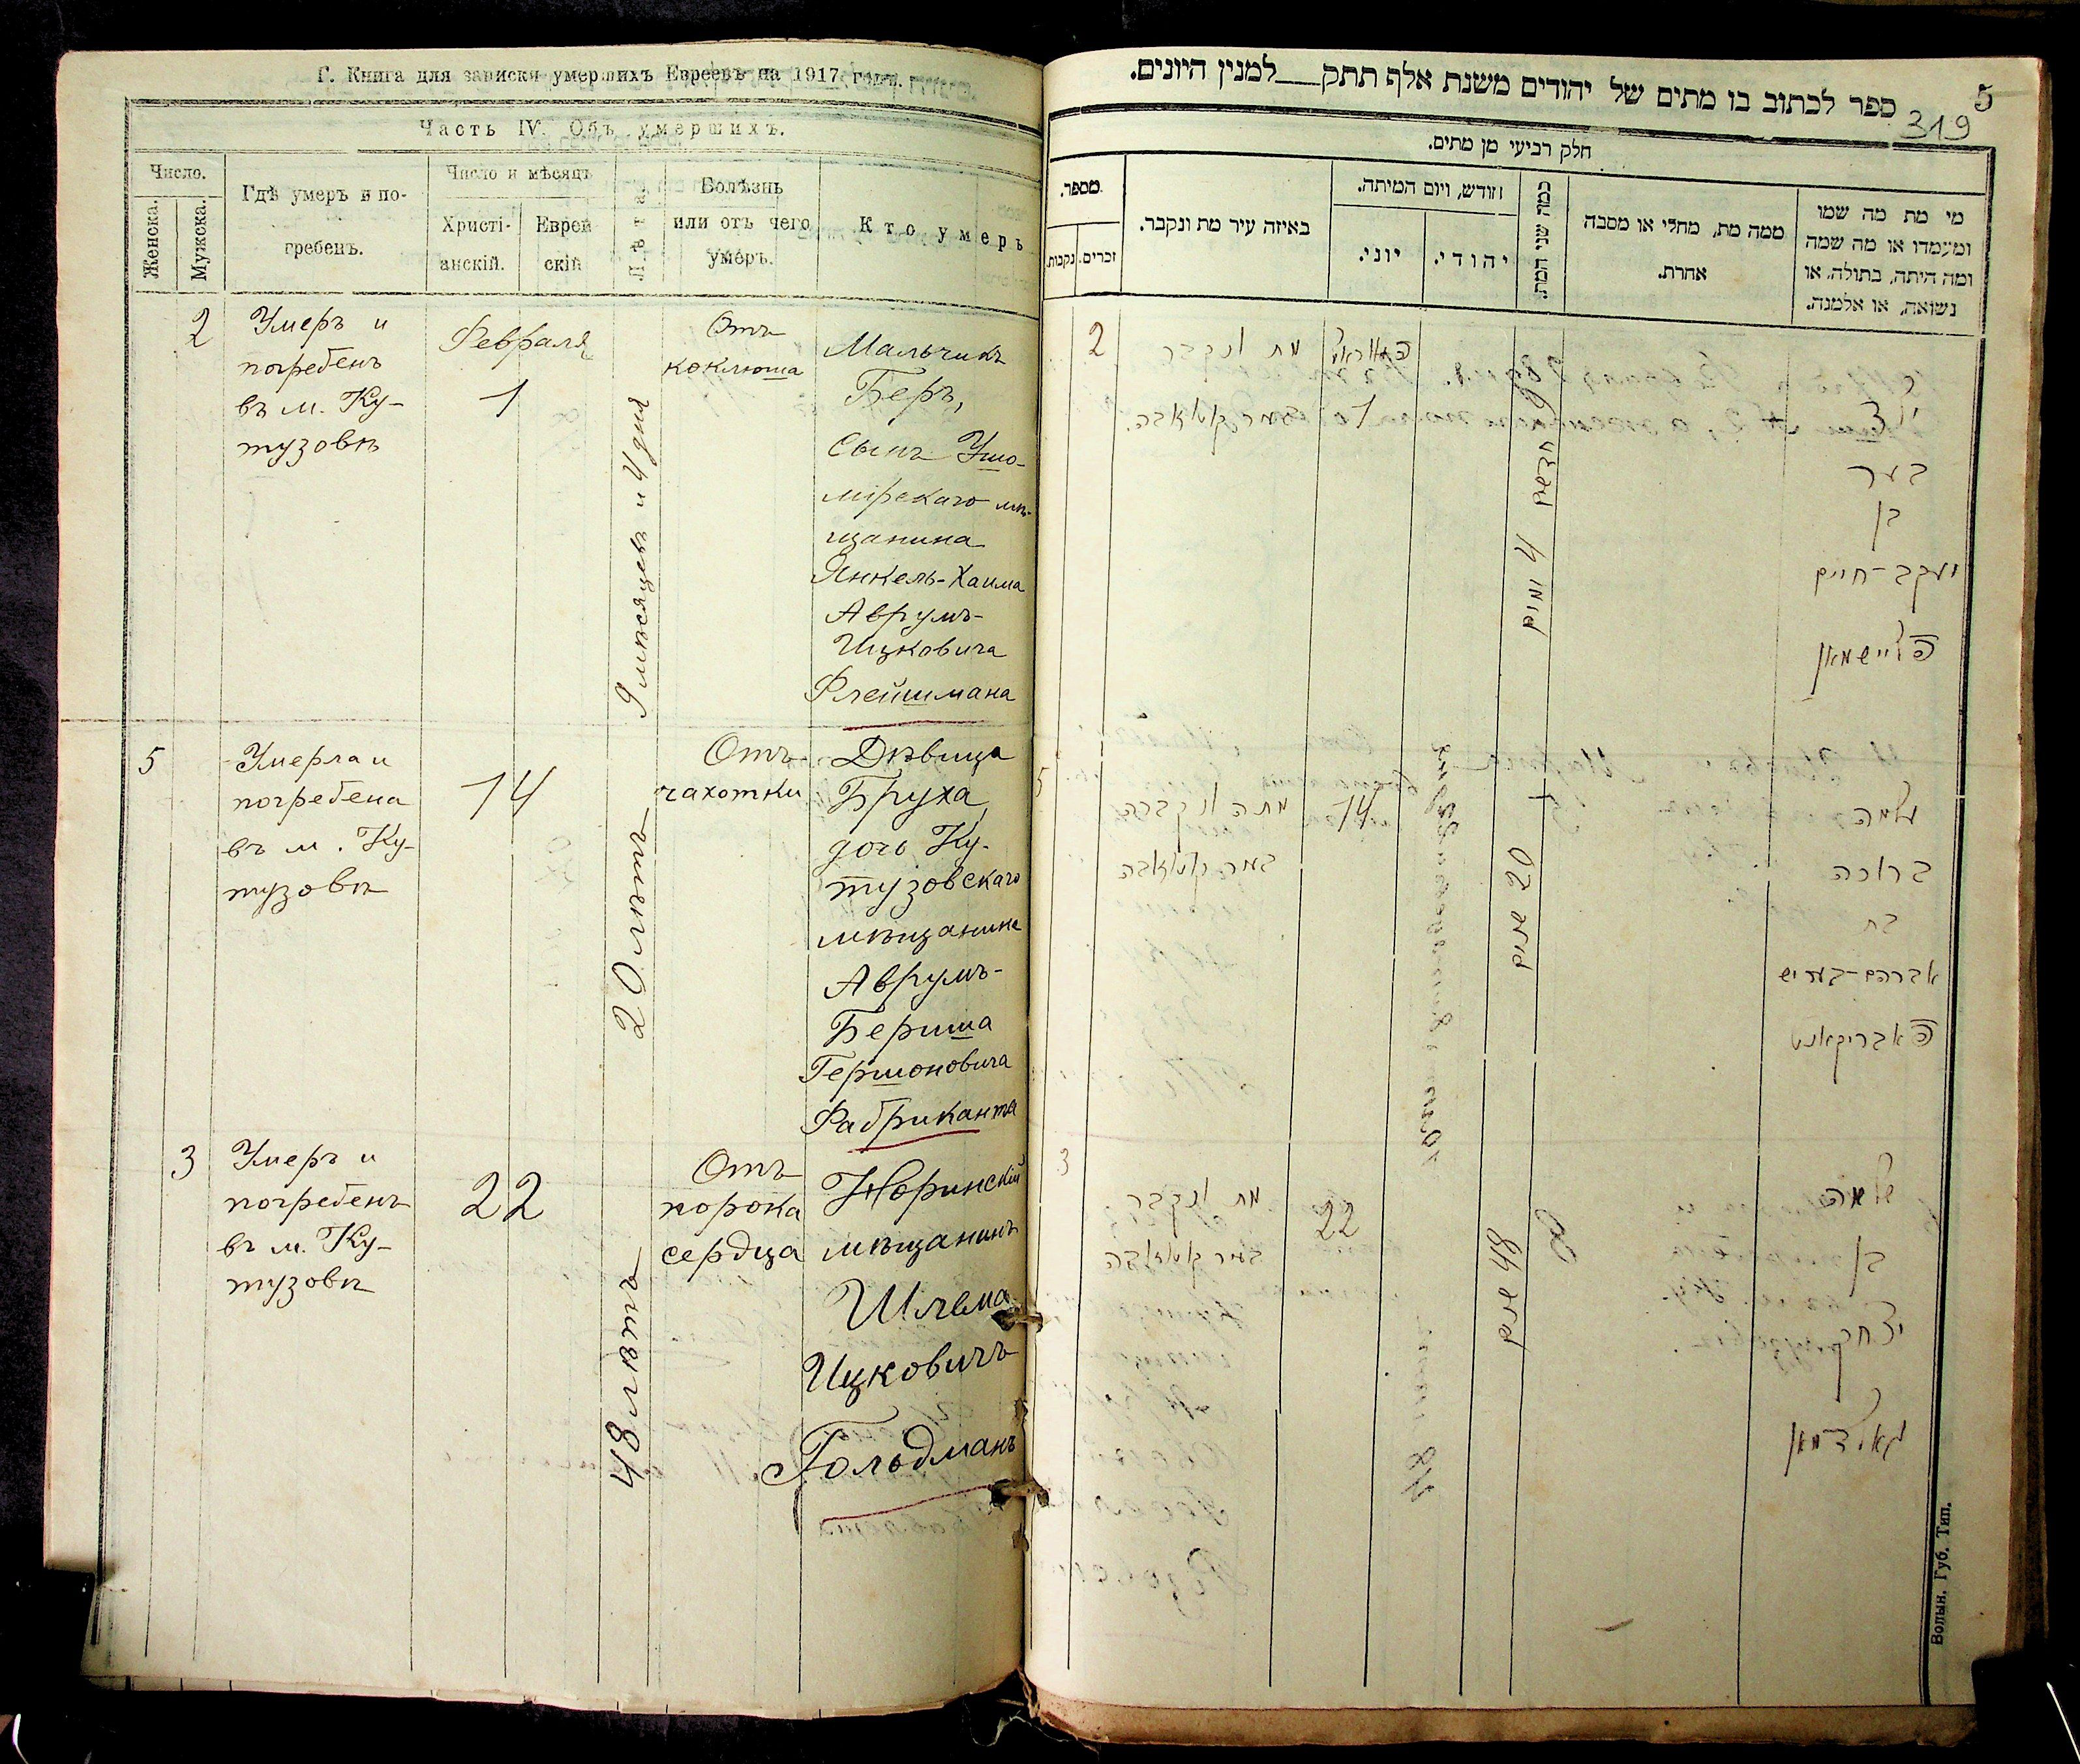 Г. Книга для записки умершихъ Евреевъ на 1917 годъ.
Часть IV. Объ умершихъ.
Число.
Женска.
Мужска.
Гдѣ умеръ и по-
гребенъ.
Число и мѣсяцъ
Христі-
анскій.
Еврей
скій
Лѣта.
Болѣзнь
или отъ чего
умеръ.
Кто умеръ
2
Умеръ и
погребенъ
въ м. Ку-
тузовѣ
Февраля
1
9 мѣсяцевъ и 4 дня
Отъ
коклюша
Мальчикъ
Беръ,
Сынъ Ушо-
мірскаго мѣ-
щанина
Янкель-Хаима
Аврумъ-
Ицковича
Флейшмана
5
Умерла и
погребена
въ м. Ку-
тузовѣ
14
20 лѣтъ
Отъ
чахотки
Дѣвица
Бруха,
дочь Ку-
тузовскаго
мѣщанина
Аврумъ-
Бериша
Гершоновича
Фабриканта
3
Умеръ и
погребенъ
въ м. Ку-
тузовѣ
22
48 лѣтъ
Отъ
порока
сердца
Норинскій
мѣщанинъ
Шлема
Ицковичъ
Гольдманъ
5
319
ספר לכתוב בו מתים של יהודים משנת אלף תתק___למנין היונים.
חלק רביעי מן מתים.
מספר.
נקבות.
זכרים.
באיזה עיר מת ונקבר.
חודש, ויום המיתה.
יוני.
יהודי.
כמה שני המת.
ממה מת, מחלי או מסבה
אחרת.
מי מת מה שמו
ומעמדו או מה שמה
ומה היתה, בתולה, או
נשואה, או אלמנה.
2
מת ונקבר
1
9 חדשים 4 ימים
בער
בן
יעקב-חיים
פליישמאן
5
מתה ונקברה
14
20 שנים
עלמה
ברוכה
בת
אברהם-בעריש
פאבריקאנט
3
מת ונקבר
22
48 שנים
שלמה
בן
יצחק
גאלדמאן
Волын. Губ. Тип.